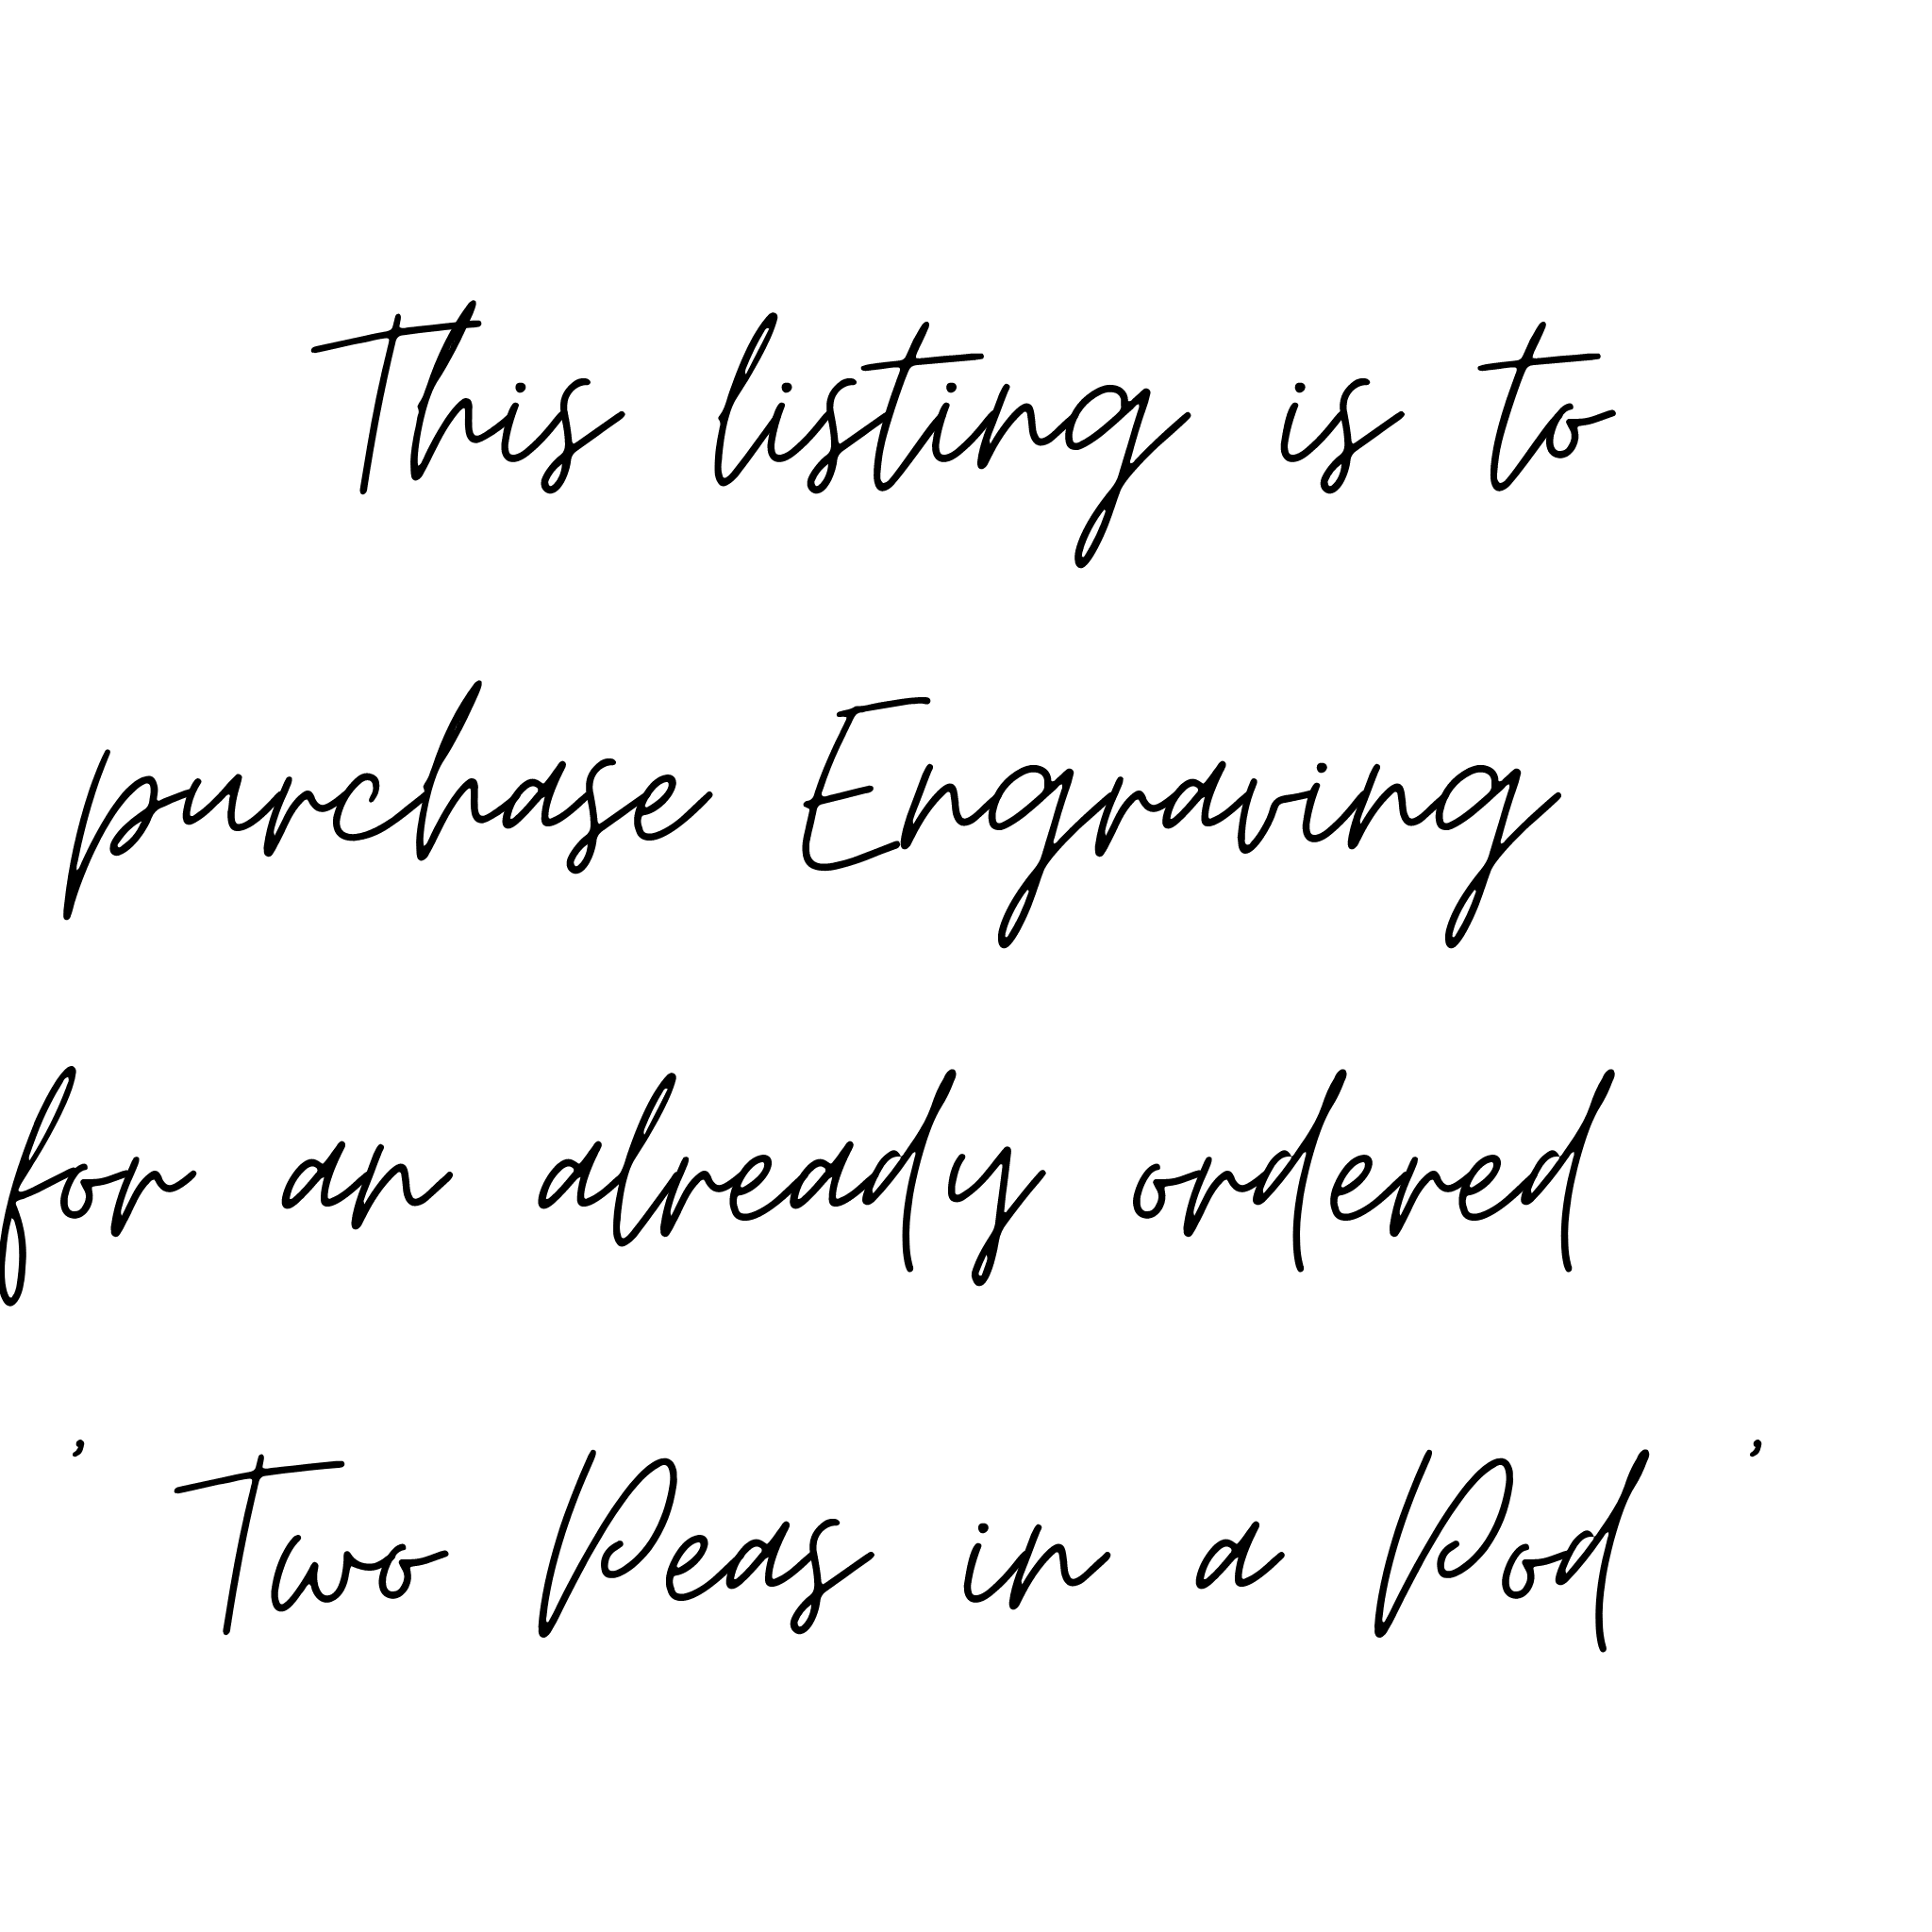 This listing is to
purchase Engraving
for an already ordered
' Two Peas in a Pod '